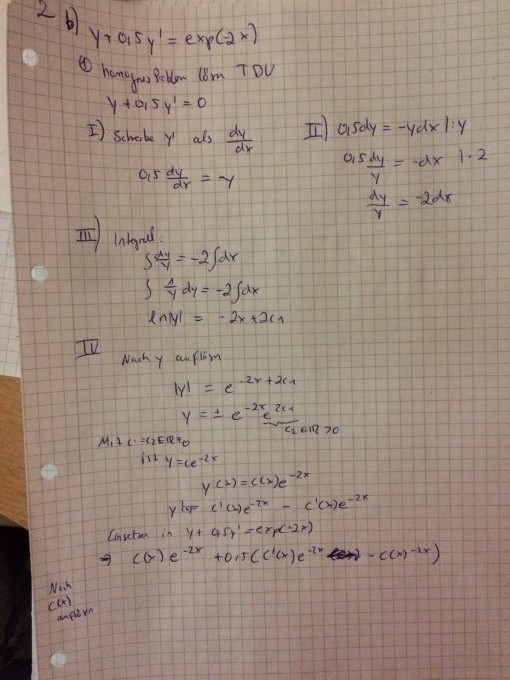 2 b) y + 0,5 y' = exp(-2x)
① homogenes Problem lösen TDV
y + 0,5 y' = 0
I) Schreibe y' als dy/dx
0,5 dy/dx = -y
II) 0,5 dy = -y dx |: y
0,5 dy/y = -dx | · 2
dy/y = -2dx
III) Integral:
∫ dy/y = -2∫dx
∫ 1/y dy = -2∫dx
ln|y| = -2x + 2c₁
IV Nach y auflösen
|y| = e^(-2x + 2c₁)
y = ± e^(-2x) e^(2c₁)
c₂ ∈ ℝ > 0
Mit c := c₂ ∈ ℝ ≠ 0
ist y = ce^(-2x)
y(x) = c(x)e^(-2x)
c'(x)e^(-2x) - c'(x)e^(-2x)
Einsetzen in y + 0,5y' = exp(-2x)
⇒ c(x) e^(-2x) + 0,5(c'(x)e^(-2x) - c(x)^(-2x))
Nach
c(x)
auflösen